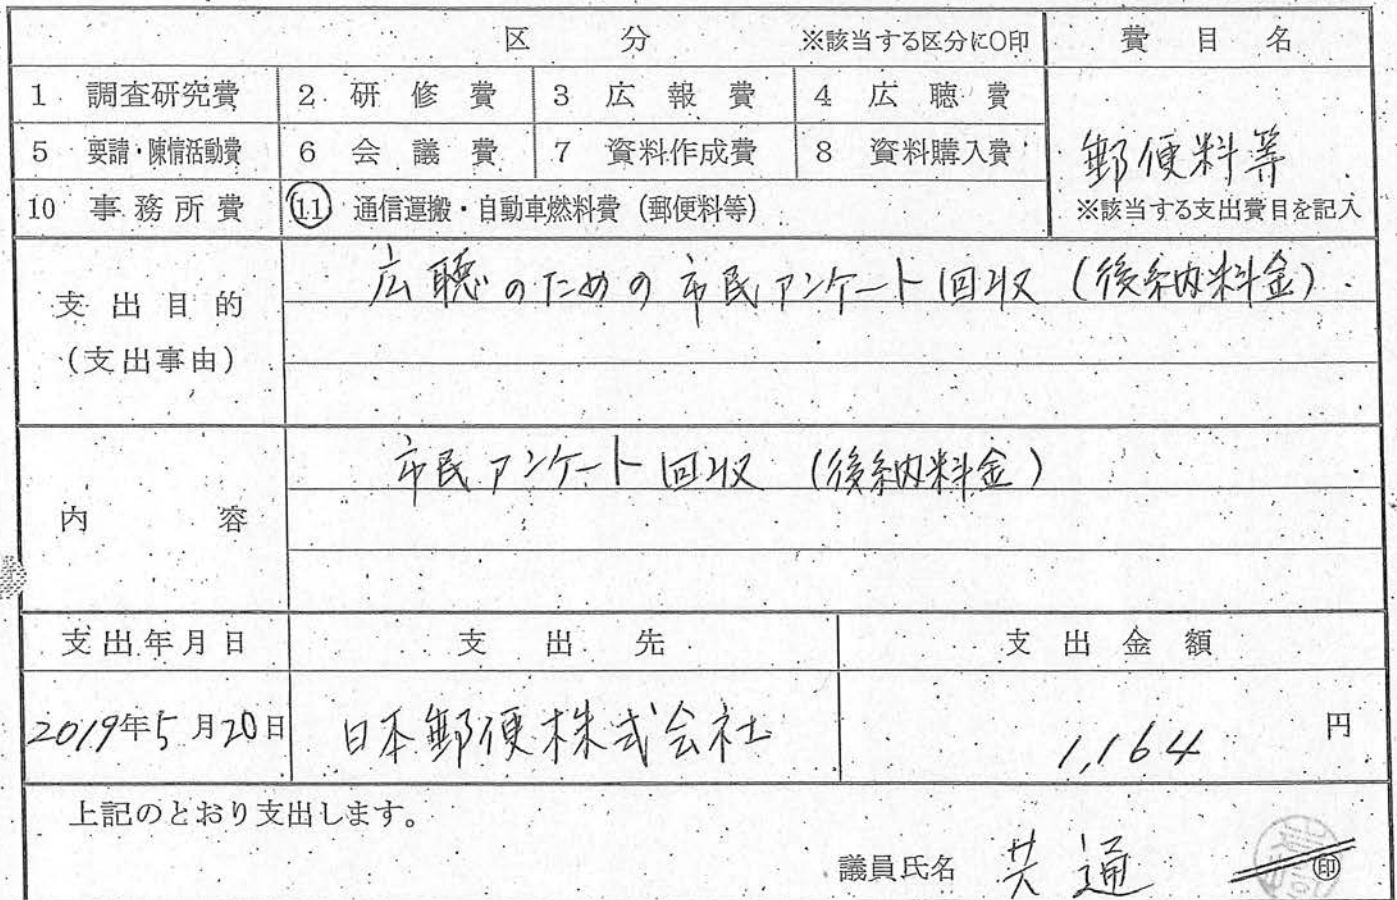 区 分 ※該当する区分に○印 費目名
1 調査研究費 2 研修費 3 広報費 4 広聴費
5 要請・陳情活動費 6 会議費 7 資料作成費 8 資料購入費
郵便料等
10 事務所費 11 通信運搬・自動車燃料費(郵便料等) ※該当する支出費目を記入
支出目的
(支出事由)
広聴のための市民アンケート回収(後納料金)
内 容
市民アンケート回収 (後納料金)
支出年月日 支出先 支出金額
2019年5月20日 日本郵便株式会社 1,164 円
上記のとおり支出します。
議員氏名 共通 印